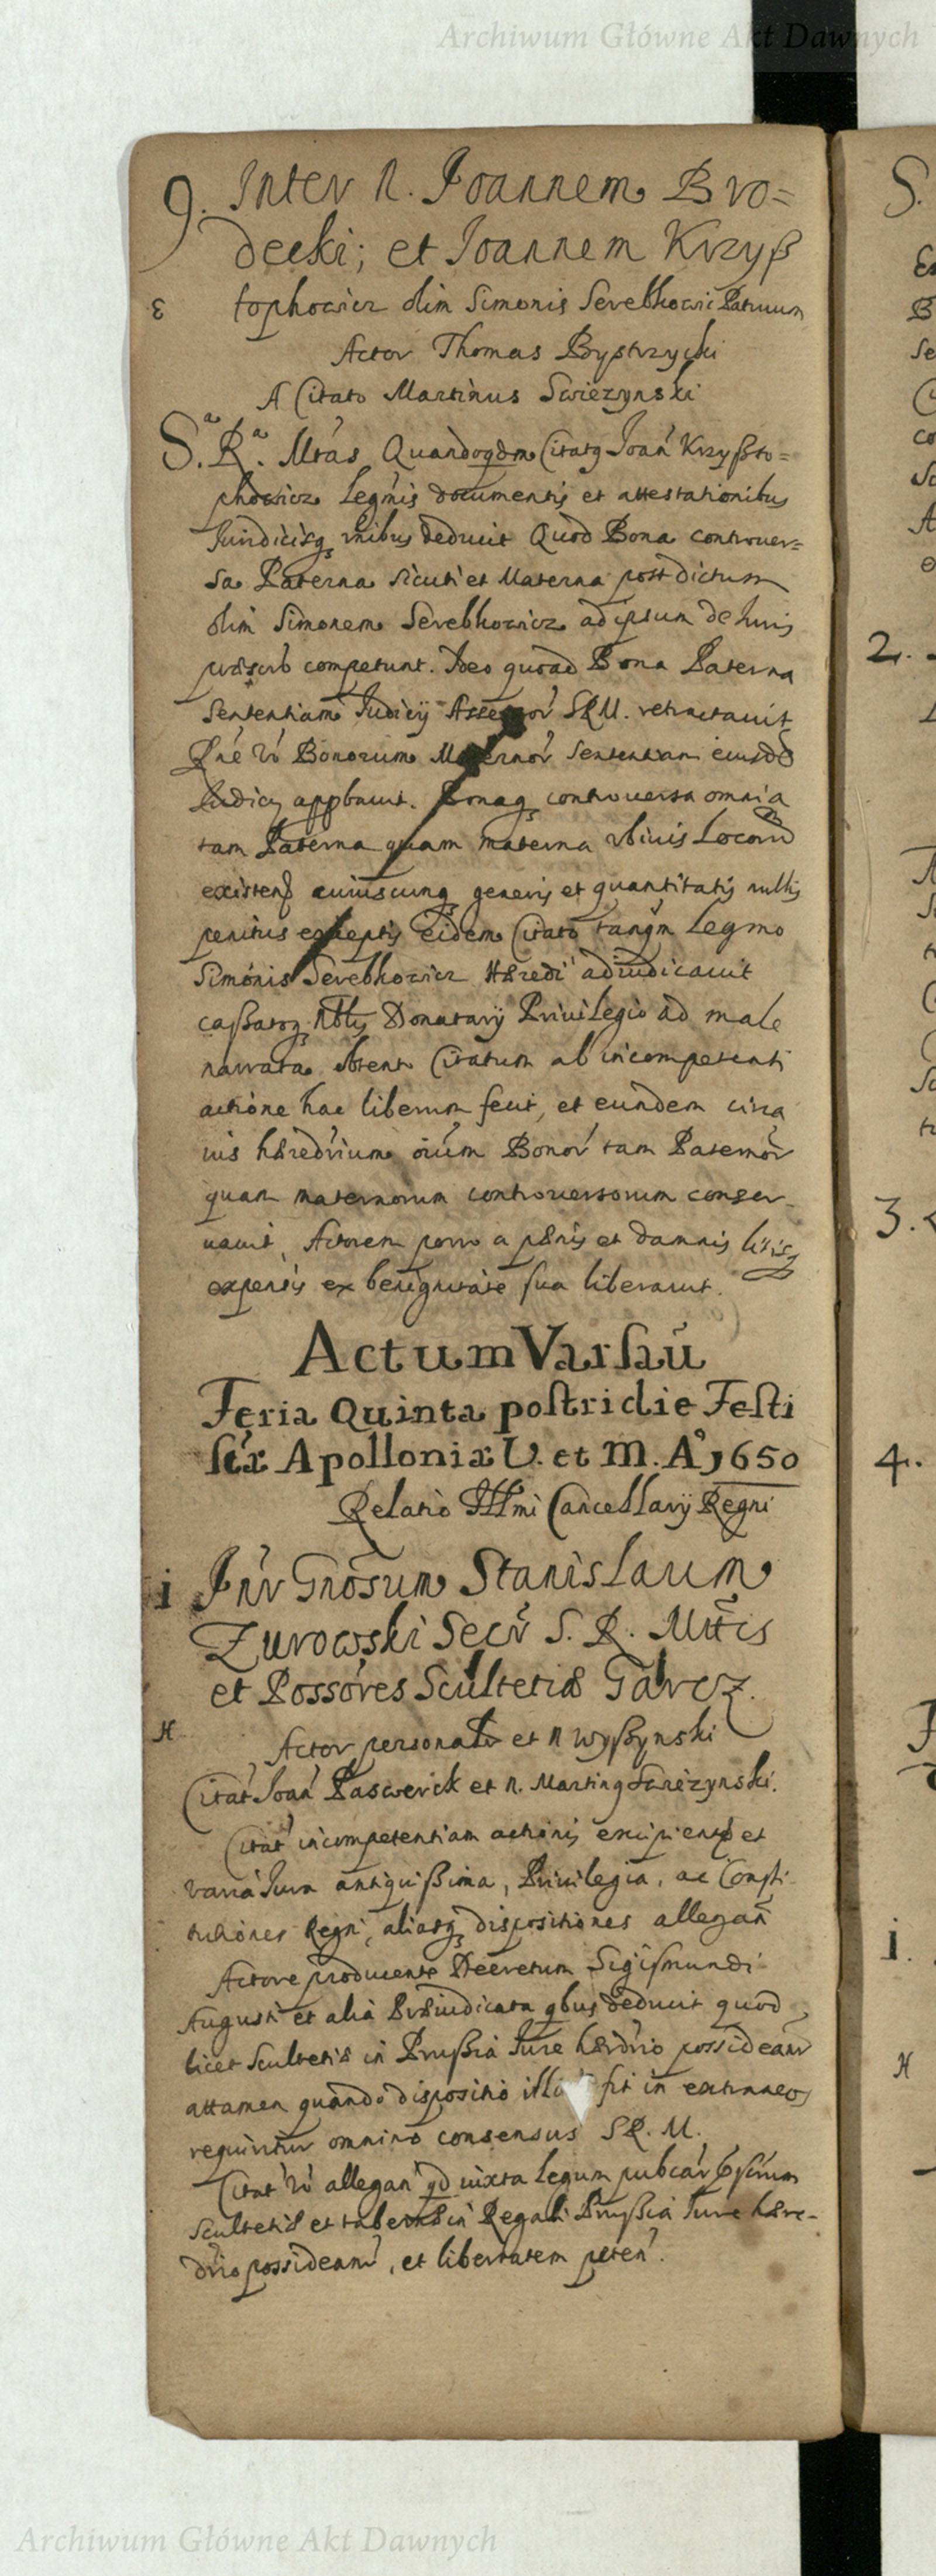 Archiwum Główne Akt Dawnych
9. Inter N. Joannem Bro=
decki; et Joannem Krzyß
tophowicz olim Simonis Serebkowic Patruum
Actor Thomas Bystrzycki
A Citato Martinus Swiezynski
S.ª R.ª Mtás Quandoqdm Citatq Joan̄ Krzyßto=
phowicz Legmis documentis et attestationibus
Iuridicisq mibus deduxit Quod Bona controuer=
sa Paterna sicuti et Materna post dictum
olim Simonem Serebkowicz ad ipsum de Iuris
præscrō competunt. Ideo quoad Bona Paterna
Sententiam Iudicij Assessor̄ SRM. retractauit
Rn̄e v̄o Bonorum Maternor̄ sententiam eiusdē
Iudicij appbauit. Bonaq controuersa omnia
tam Paterna quam materna vbiuis Locorū
existen̄ cuiuscunq generis et quantitatis nullis
penitus exceptis eidem Citato tanqm Legmo
Simonis Serebkowicz Hæredi adiudicauit
caßatoq Nblis Donatarij Priuilegio ad male
narrata obtent Citatum ab incompetenti
actione hac liberum fecit, et eundem circa
ius hæredrium oium Bonor̄ tam Paternor̄
quam maternorum controuersorum conser
uauit, Actorem porro a pænis et damnis litis
expensis ex benignitate sua liberauit.
Actum Varsau̅
Feria Quinta postridie Festi
sctæ Apolloniæ V. et M. A° 1650
Relatio Illmi Cancellarij Regni
i Intr Gnōsum Stanislaum
Zurowski Secr̄ S. R. Mttis
et Possores Scultetiæ Garcz.
H Actor personatr et N Wyßynski
Citat̄ Joan̄ Paswerck et N. Martinq Swiezynski.
Citat̄ incompetentiam actionis excipient et
varia Iura antiquißima, Priuilegia, ac Consti
tutiones Regni, aliasq dispositiones allegan̄
Actore producente Decretum Sigismundi
Augusti et alia Præiudicata qbus deducit quod
licet Scultetiæ in Prußia Iure hærdrio possideant̄
attamen quando dispositio fit in extraneos
requiritur omnino consensus SR. M.
Citat̄ v̄o allegan̄ qd iuxta Legum pubcar̄
Scultetiæ et tabernæ in Regali Prußia Iure hære-
drio possideant̄, et libertatem peten̄.
S.
2.
3.
4.
i.
H
Archiwum Główne Akt Dawnych